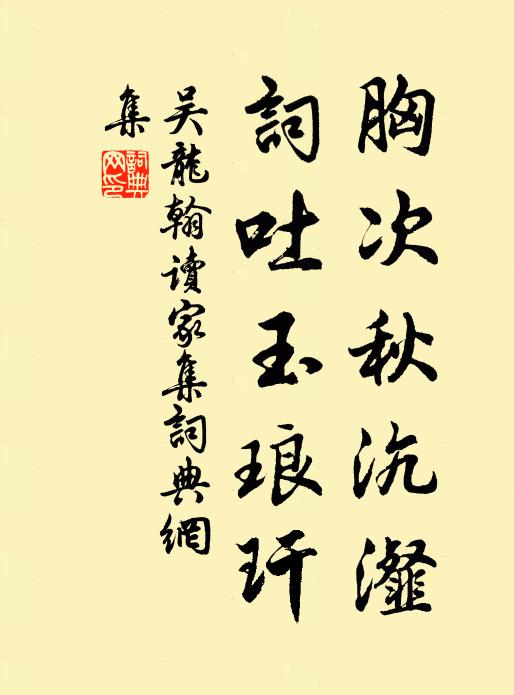 胸次秋沆瀣
詞吐玉琅玕
吴龍翰讀家集詞典網
集
詞典网印